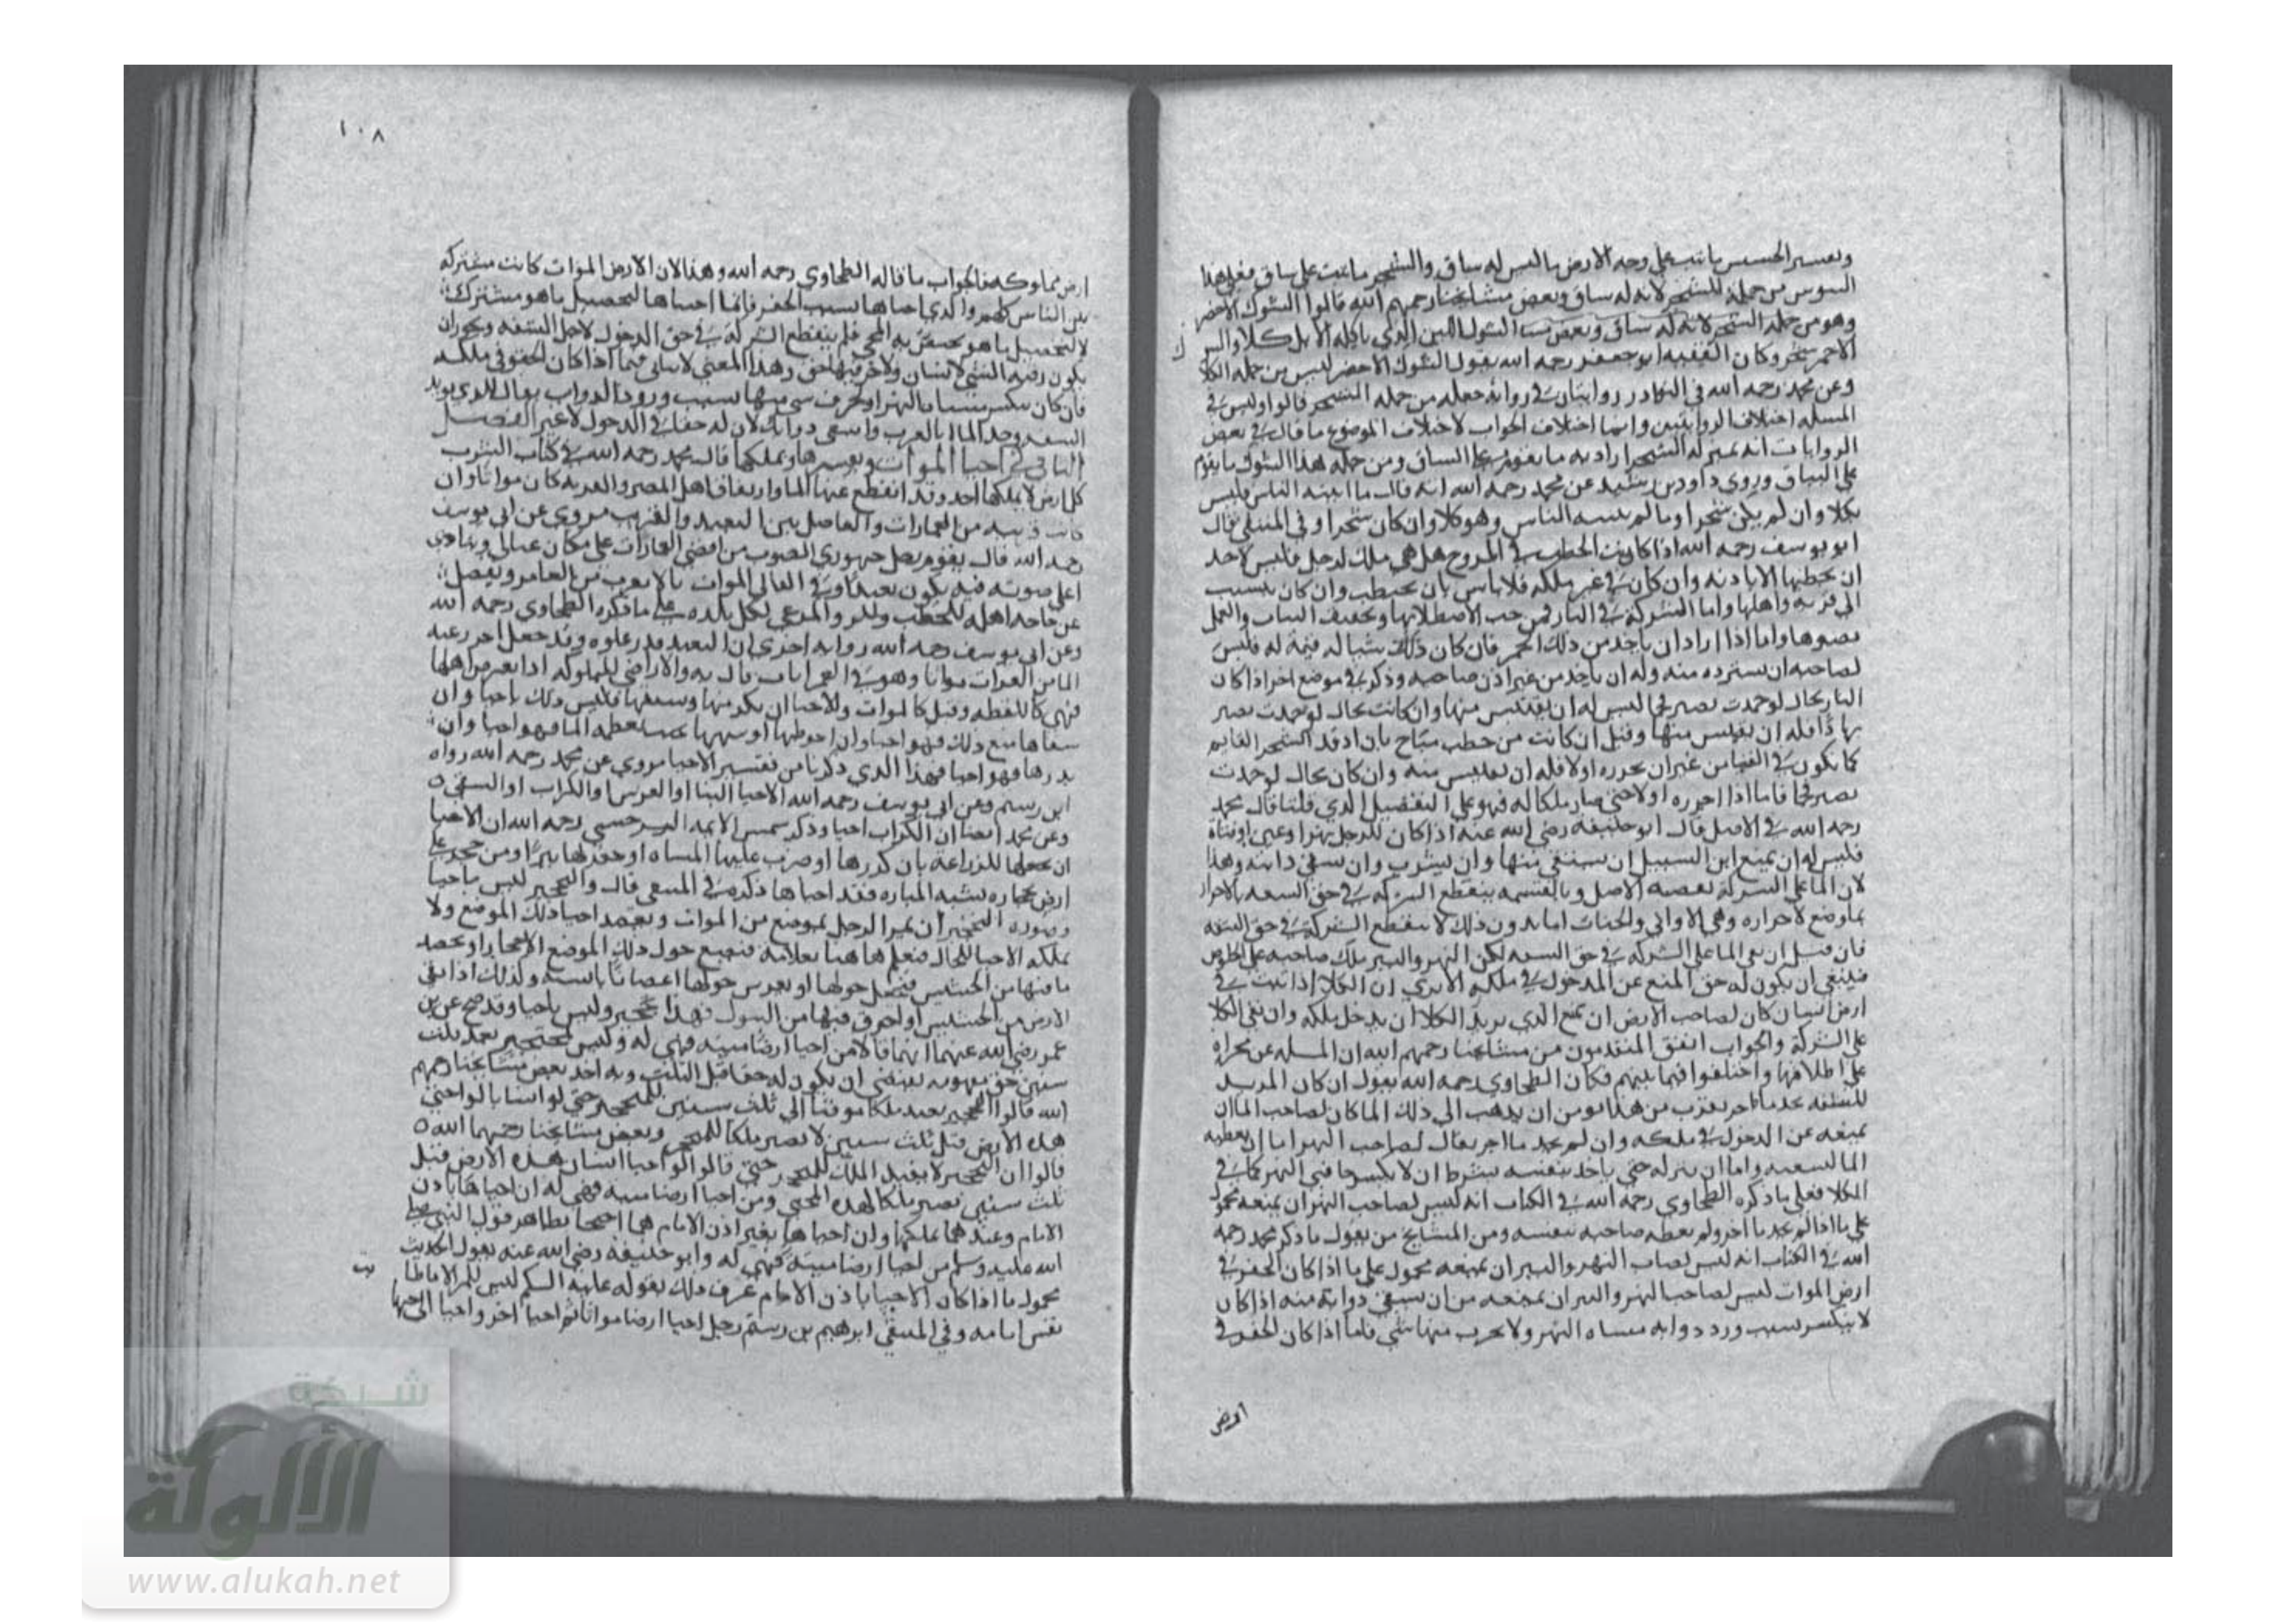 وتفسير الحشيش ما نبت على وجه الارض ما ليس له ساق والشجر ما نبت على ساق فعلى هذا
السوس من جملة الشجر لانه له ساق وبعض مشايخنا رحمهم الله قالوا الشوك الاخضر
وهو من جملة الشجر لانه له ساق وبعض الشوك اللين الذي ياكله الابل كلا
الاحمر شجر وكان الفقيه ابو جعفر رحمه الله يقول الشوك الاخضر ليس من جملة الكلا
وعن محمد رحمه الله في النوادر روايتان في رواية جعله من جملة الشجر قالوا وليس في
المسله اختلاف الروايتين وانما اختلاف الجواب لاختلاف الموضوع ما قال في بعض
الروايات انه بمنزلة الشجر اراد به ما يقوم على الساق ومن جملة هذا الشوك ما يقوم
على الساق وروي داود بن رشيد عن محمد رحمه الله انه قال ما انبته الناس فليس
بكلا وان لم يكن شجرا وما لم ينبته الناس وهو كلا وان كان شجرا وفي المنتقى قال
ابو يوسف رحمه الله اذا كانت الحطب في المروج هل هي ملك لرجل فليس لاحد
ان يحتطبها الا باذنه وان كان في غير ملكه فلا باس بان يحتطب وان كان ينسب
الى قرية واهلها واما الشركة في النار فمن حيث الاصطلا بها وتجفيف الثياب والعمل
بضوها واما اذا اراد ان ياخذ من ذلك الجمر فان كان ذلك شيا له قيمة له فليس
لصاحبه ان يسترده منه وله ان ياخذ من غير اذن صاحبه وذكر في موضع اخر اذا كان
النار بحال لو خمدت تصير فحما ليس له ان يقتبس منها وان كانت بحال لو خمدت تصير
رمادا فله ان يقتبس منها وقيل ان كانت من حطب مباح بان اوقد الشجر القايم
كما يكون في الفيافي من غير ان يحرزه اولا فله ان يقتبس منه وان كان بحال لو خمدت
تصير فحما فاما اذا احرزه اولا حتى صار ملكا له فهو على التفصيل الذي قلنا قال محمد
رحمه الله في الاصل قال ابو حنيفه رضي الله عنه اذا كان للرجل نهرا وعين او قناة
فليس له ان يمنع ابن السبيل ان يستقي منها وان يشرب وان يسقي دابته وهذا
لان الما على الشركة بقضية الاصل وبالقسمه ينقطع الشركه في حق السعه بالاحراز
بما وضع لاحرازه وهي الاواني والحباب اما بدون ذلك لا ينقطع الشركة في حق الشفه
فان قيل ان بقي الما على الشركه في حق السعه لكن النهر والبير ملك صاحبه على الخلوص
فينبغي ان يكون له حق المنع عن الدخول في ملكه الا يرى ان الكلا اذا نبت في
ارض انسان كان لصاحب الارض ان يمنع الذي يريد الكلا ان يدخل ملكه وان بقي الكلا
على الشركة والجواب اتفق المتقدمون من مشايخنا رحمهم الله ان المسله غير مجراه
على اطلاقها واختلفوا فيما بينهم فكان الطحاوي رحمه الله يقول ان كان المريد
للشفه يجد ما اخر بقرب من هذا يومر ان يذهب الى ذلك الما كان لصاحب الما ان
يمنعه عن الدخول في ملكه وان لم يجد ما اخر يقال لصاحب النهر اما ان تعطيه
الما لسعيه واما ان يتركه حتى ياخذ بنفسه بشرط ان لا يكسر حافتي النهر كما في
الكلا فعلى ما ذكره الطحاوي رحمه الله في الكتاب انه ليس لصاحب النهر ان يمنعه محمول
على ما اذا لم يجد ما اخر ولم يعطه صاحبه بنفسه ومن المشايخ من يقول ما ذكر محمد رحمه
الله في الكتاب انه ليس لصاحب النهر والبير ان يمنعه محمول على ما اذا كان الحفر في
ارض الموات ليس لصاحب النهر والبير ان يمنعه من ان يسقي دوابه منه اذا كان
لا ينكسر بسبب ورود دوابه مسناه النهر ولا يخرب منها شي فاما اذا كان الحفر في
ارض
١٠٨
ارض مملوكه فالجواب ما قاله الطحاوي رحمه الله وهذا لان الارض الموات كانت مشتركه
بين الناس كلهم والذي احياها بسبب الحفر فانما احياها لتحصيل ما هو مشترك
لا لتحصيل ما هو مختص به المحيي فلم ينقطع الشركة في حق الدخول لاجل الشفه ويجوز ان
يكون رقبه الشي لانسان ولاخر فيها حق وهذا المعنى لا يتاتى فيما اذا كان الحفر في ملكه
فان كان ينكسر مسناه النهر او يخرب شي منها بسبب ورود الدواب يقال للذي يريد
السعه وجد الما بالقرب واسقي دوابك لان له حقا في الدخول لا غير الفصل
الثاني في احيا الموات وتفسيرها وتملكها قال محمد رحمه الله في كتاب الشرب
كل ارض لا يملكها احد وقد انقطع عنها الما وارتفاق اهل المصر والقريه كان مواتا وان
كانت قريبه من العمارات والفاصل بين البعيد والقريب مروي عن ابي يوسف
رحمه الله قال يقوم رجل جهوري الصوت من اقصى العمارات على مكان عالي وينادي
اعلى صوته فيه يكون بعيدا وفي الموات ما لا يقرب من العامر ويفصل
عن حاجة اهله للحطب والمرعى لكل بلده على ما ذكره الطحاوي رحمه الله
وعن ابي يوسف رحمه الله رواية اخرى ان البعيد قدر غلوه وقد جعل
الما من الفرات مواتا والاراضي المملوكه اذا انقرض اهلها
فهي كاللقطه وقيل كالموات والاحيا ان يكربها ويسقيها فليس ذلك باحيا وان
سقاها مع ذلك فهو احيا وان حوطها او سنمها يعصم الما فهو احيا وان
بذرها فهو احيا فهذا الذي ذكرنا من تفسير الاحيا مروي عن محمد رحمه الله رواه
ابن رستم وعن ابي يوسف رحمه الله الاحيا البنا او الغرس والكراب او السقي
وعن محمد ايضا ان الكراب احيا وذكر شمس الايمه السرخسي رحمه الله ان الاحيا
ان يجعلها للزراعة بان كربها او ضرب عليها المسناه او حفر لها بيرا ومن
فقد احياها ذكره في المنتقى قال والتحجير ليس باحيا
وصوره التحجير ان يمر الرجل بموضع من الموات ويقصد احيا ذلك الموضع ولا
يملكه الاحيا للحال فيعلم هاهنا بعلامة فيضع حول ذلك الموضع الاحجار او يحصد
ما فيها من الحشيش فيجعل حولها او يغرس حولها اغصانا يابسة وكذلك اذا نقى
الارض من الحشيش او احرق فيها من الشوك فهذا تحجير وليس باحيا وقد صح عن ابن
عمر رضي الله عنهما انهما قالا من احيا ارضا ميته فهي له وليس لمحتجر بعد ثلث
سنين حق يقتضي ان يكون له حق قبل الثلث وبه اخذ بعض مشايخنا رحمهم
الله قالوا التحجير يفيد ملكا موقتا الى ثلث سنين للمحتجر حتى لو انسانا لو احيى
هذه الارض قبل ثلث سنين لا يصير ملكا للمحيي وبعض مشايخنا رحمهم الله
قالوا ان التحجير لا يفيد الملك للمحتجر حتى قالوا لو احيا انسان هذه الارض قبل
ثلث سنين تصير ملكا لهذا المحيي ومن احيا ارضا ميته فهي له ان احياها باذن
الامام وعندهما يملكها وان احياها بغير اذن الامام هما احتجا بظاهر قول النبي صلى
الله عليه وسلم من احيا ارضا ميتة فهي له وابو حنيفة رضي الله عنه يقول الحديث
محمول ما اذا كان الاحيا باذن الامام عرف ذلك بقوله عليه السلم ليس للمر الا ما طابت
نفس امامه وفي المنتقى ابرهيم بن رستم رجل احيا ارضا مواتا ثم احيا اخر واحيا
شبكة
الألوكة
www.alukah.net